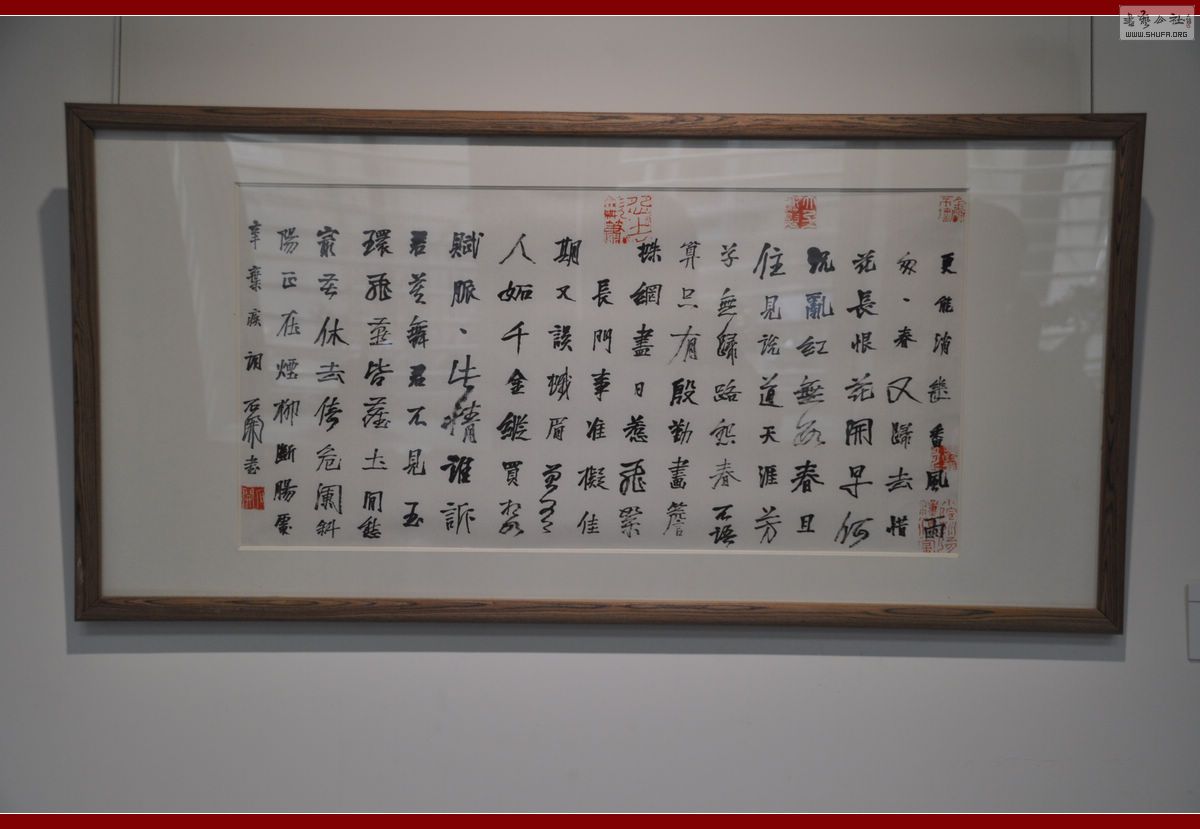 更能消幾番風雨
匆、春又歸去惜
花長恨花開早何
況亂紅無數春且
住見說道天涯芳
草無歸路怨春不語
算只有殷勤畫簷
蛛網盡日惹飛絮
長門事准擬佳
期又誤蛾眉曾有
人妬千金縱買相如
賦脈、此情誰訴
君莫舞君不見玉
環飛燕皆塵土閒愁
最苦休去倚危闌斜
陽正在煙柳斷腸處
辛棄疾詞 石開書
书艺公社
WWW.SHUFA.ORG